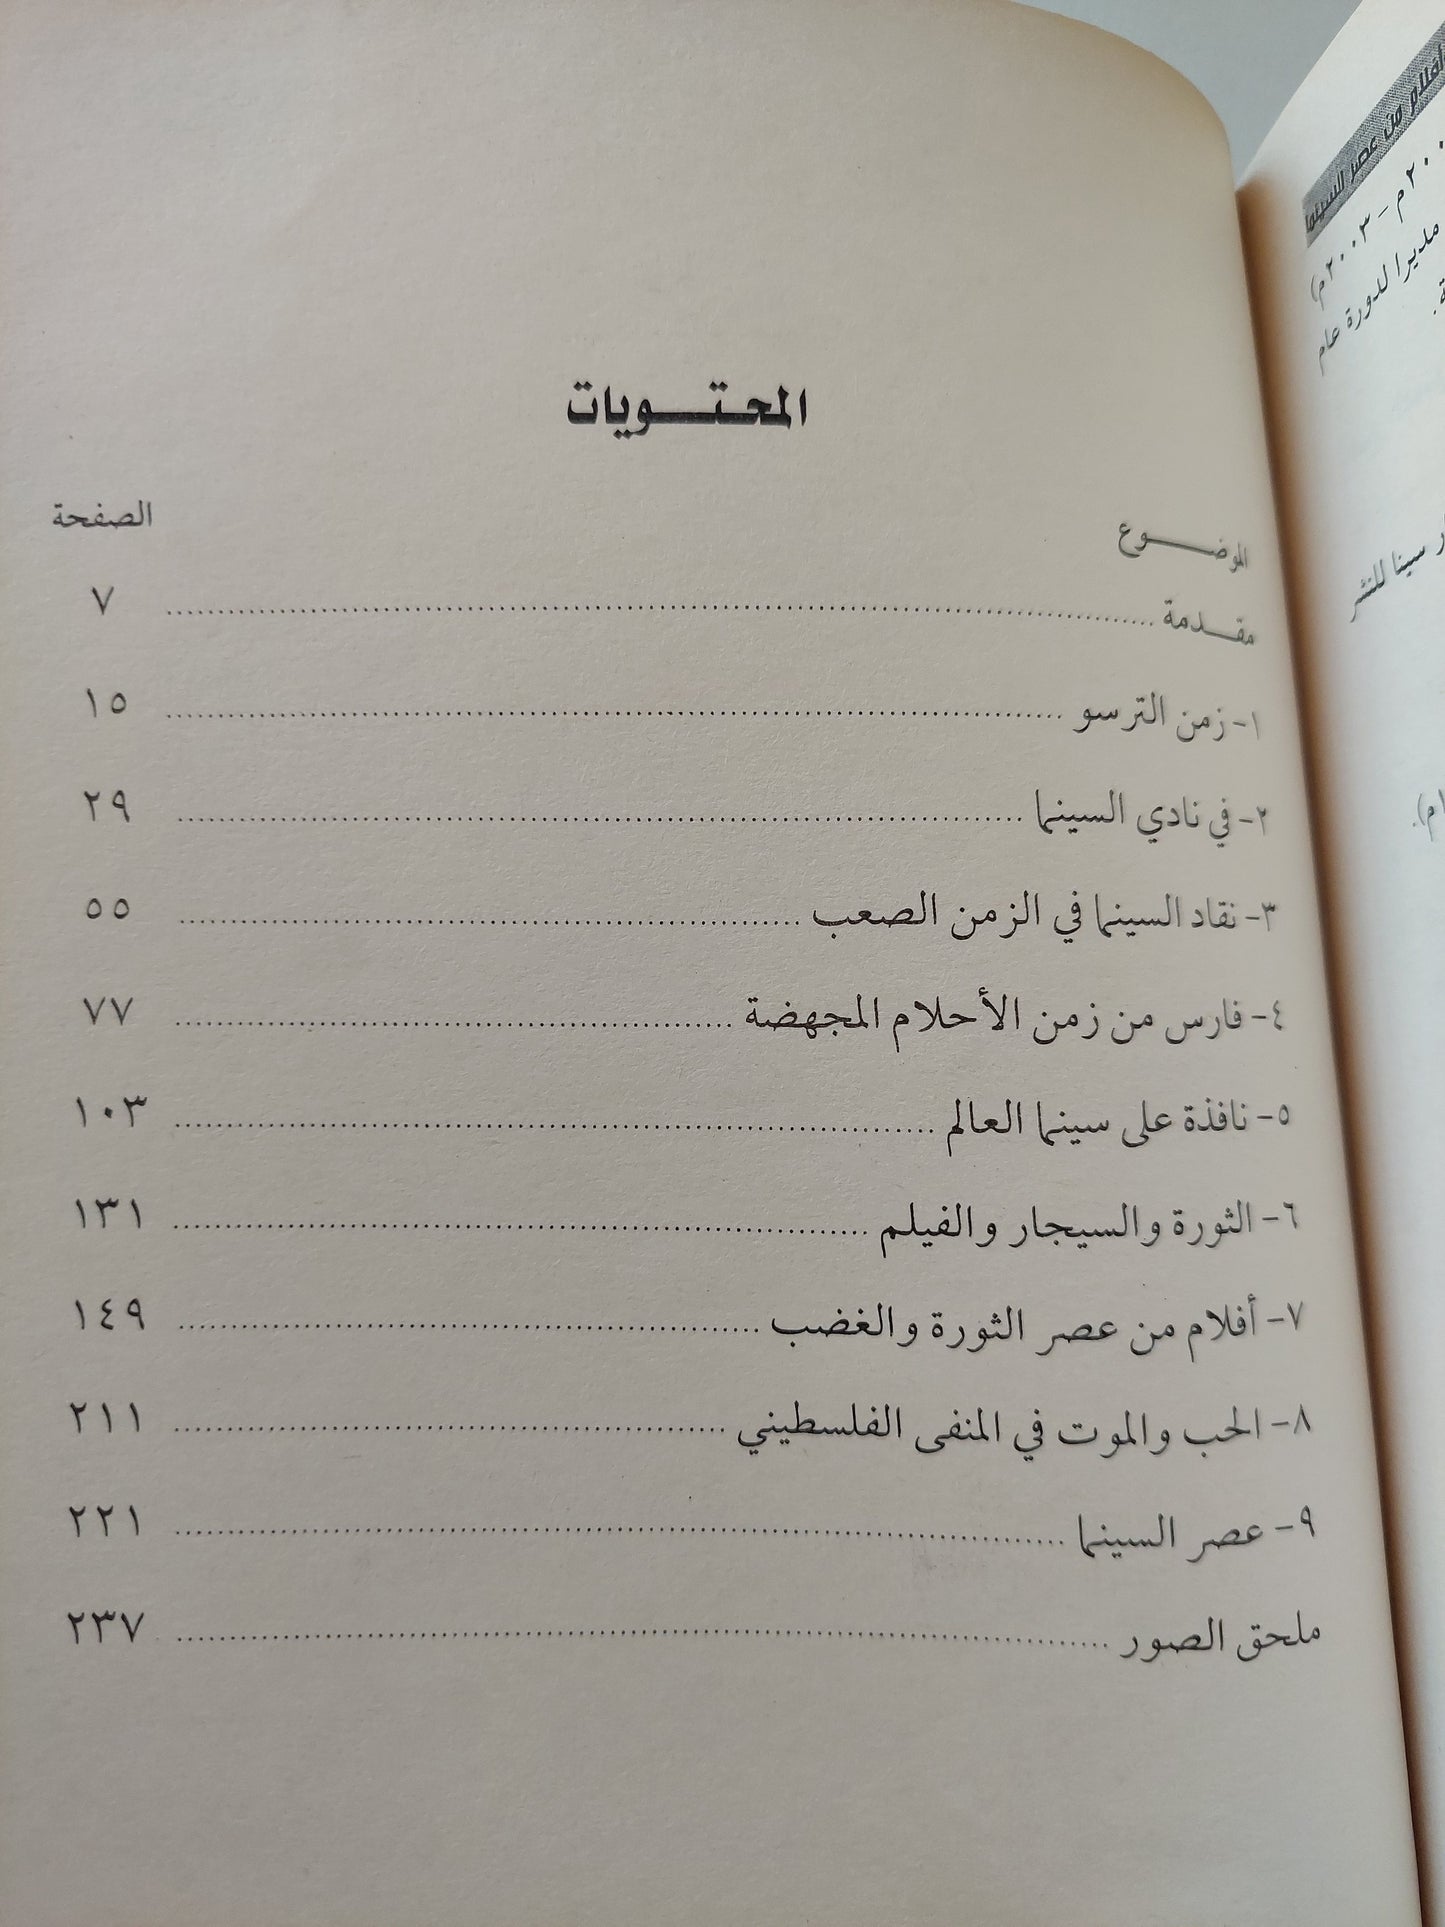 المحتويات
الموضوع الصفحة
مقدمة ........ ٧
١- زمن الترسو ........ ١٥
٢- في نادي السينما ........ ٢٩
٣- نقاد السينما في الزمن الصعب ........ ٥٥
٤- فارس من زمن الأحلام المجهضة ........ ٧٧
٥- نافذة على سينما العالم ........ ١٠٣
٦- الثورة والسيجار والفيلم ........ ١٣١
٧- أفلام من عصر الثورة والغضب ........ ١٤٩
٨- الحب والموت في المنفى الفلسطيني ........ ٢١١
٩- عصر السينما ........ ٢٢١
ملحق الصور ........ ٢٣٧
من عصر السينما
م – ٢٠٠٣م)
مديرا للدورة عام
سينا للنشر